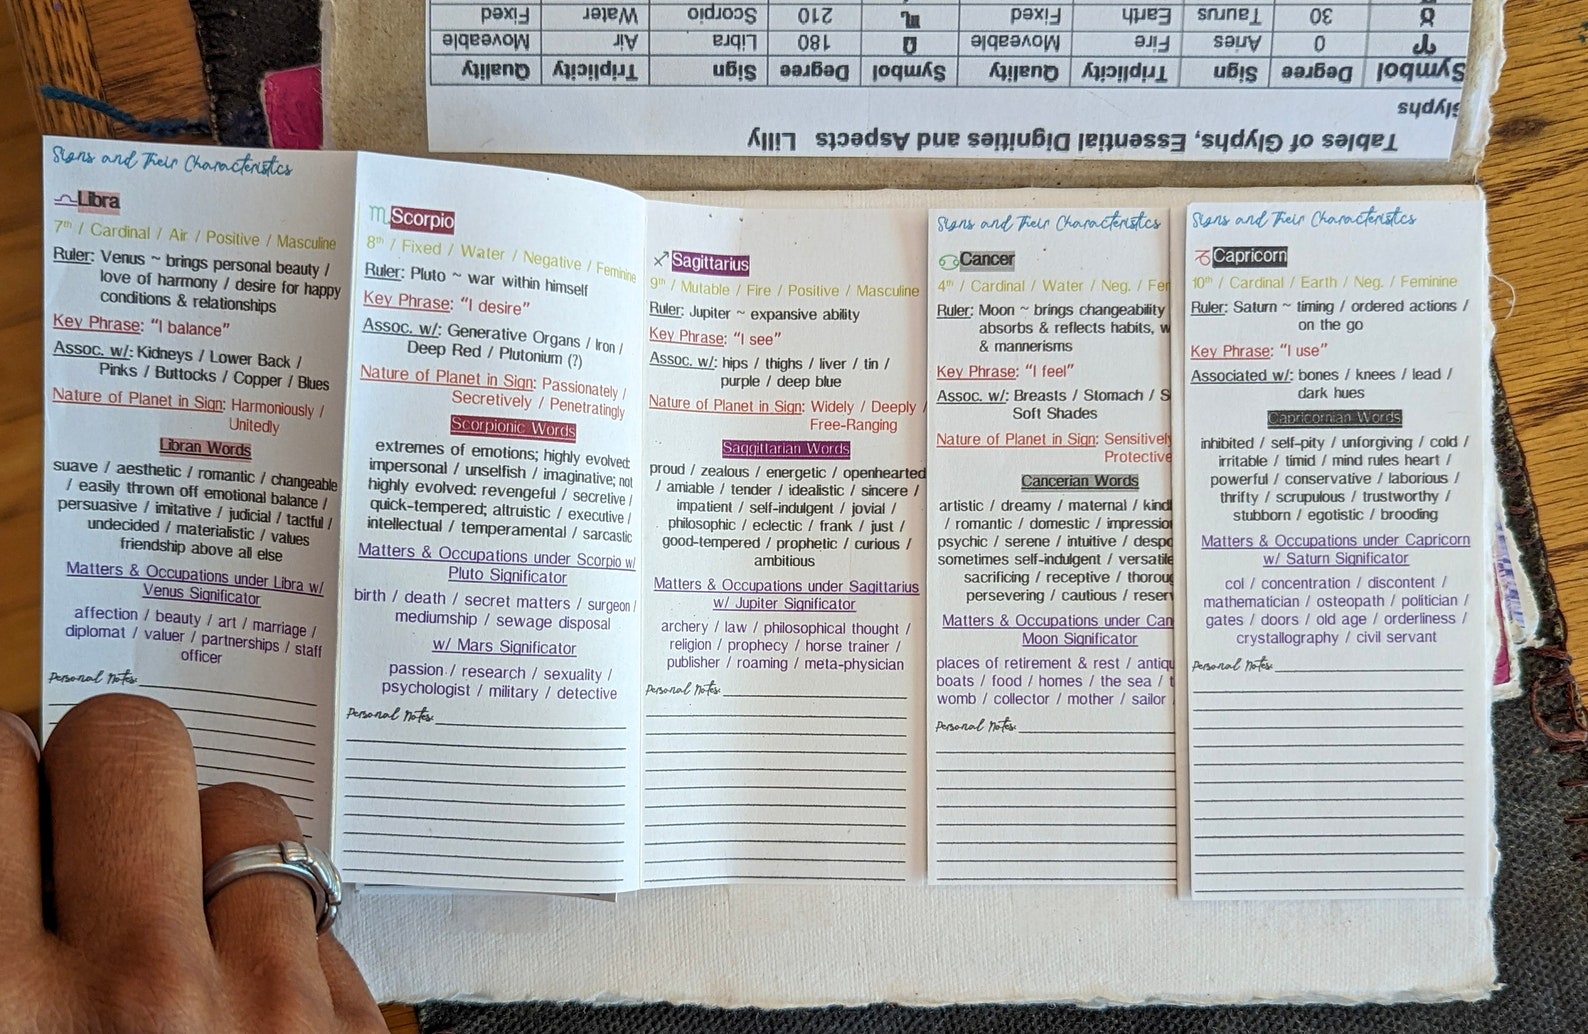 Tables of Glyphs, Essential Dignities and Aspects Lilly
Glyphs
Symbol Degree Sign Triplicity Quality Symbol Degree Sign Triplicity Quality
♈ 0 Aries Fire Moveable ♎ 180 Libra Air Moveable
♉ 30 Taurus Earth Fixed ♏ 210 Scorpio Water Fixed
Signs and Their Characteristics
♎ Libra
7th / Cardinal / Air / Positive / Masculine
Ruler: Venus ~ brings personal beauty /
love of harmony / desire for happy
conditions & relationships
Key Phrase: "I balance"
Assoc. w/: Kidneys / Lower Back /
Pinks / Buttocks / Copper / Blues
Nature of Planet in Sign: Harmoniously /
Unitedly
Libran Words
suave / aesthetic / romantic / changeable
/ easily thrown off emotional balance /
persuasive / imitative / judicial / tactful /
undecided / materialistic / values
friendship above all else
Matters & Occupations under Libra w/
Venus Significator
affection / beauty / art / marriage /
diplomat / valuer / partnerships / staff
officer
Personal Notes:
♏ Scorpio
8th / Fixed / Water / Negative / Feminine
Ruler: Pluto ~ war within himself
Key Phrase: "I desire"
Assoc. w/: Generative Organs / Iron /
Deep Red / Plutonium (?)
Nature of Planet in Sign: Passionately /
Secretively / Penetratingly
Scorpionic Words
extremes of emotions; highly evolved:
impersonal / unselfish / imaginative; not
highly evolved: revengeful / secretive /
quick-tempered; altruistic / executive /
intellectual / temperamental / sarcastic
Matters & Occupations under Scorpio w/
Pluto Significator
birth / death / secret matters / surgeon /
mediumship / sewage disposal
w/ Mars Significator
passion / research / sexuality /
psychologist / military / detective
Personal Notes:
♐ Sagittarius
9th / Mutable / Fire / Positive / Masculine
Ruler: Jupiter ~ expansive ability
Key Phrase: "I see"
Assoc. w/: hips / thighs / liver / tin /
purple / deep blue
Nature of Planet in Sign: Widely / Deeply /
Free-Ranging
Saggittarian Words
proud / zealous / energetic / openhearted
/ amiable / tender / idealistic / sincere /
impatient / self-indulgent / jovial /
philosophic / eclectic / frank / just /
good-tempered / prophetic / curious /
ambitious
Matters & Occupations under Sagittarius
w/ Jupiter Significator
archery / law / philosophical thought /
religion / prophecy / horse trainer /
publisher / roaming / meta-physician
Personal Notes:
Signs and Their Characteristics
♋ Cancer
4th / Cardinal / Water / Neg. / Fe
Ruler: Moon ~ brings changeability
absorbs & reflects habits, w
& mannerisms
Key Phrase: "I feel"
Assoc. w/: Breasts / Stomach / S
Soft Shades
Nature of Planet in Sign: Sensitively
Protective
Cancerian Words
artistic / dreamy / maternal / kind
/ romantic / domestic / impressio
psychic / serene / intuitive / despo
sometimes self-indulgent / versatile
sacrificing / receptive / thoroug
persevering / cautious / reser
Matters & Occupations under Can
Moon Significator
places of retirement & rest / antiqu
boats / food / homes / the sea /
womb / collector / mother / sailor
Personal Notes:
Signs and Their Characteristics
♑ Capricorn
10th / Cardinal / Earth / Neg. / Feminine
Ruler: Saturn ~ timing / ordered actions /
on the go
Key Phrase: "I use"
Associated w/: bones / knees / lead /
dark hues
Capricornian Words
inhibited / self-pity / unforgiving / cold /
irritable / timid / mind rules heart /
powerful / conservative / laborious /
thrifty / scrupulous / trustworthy /
stubborn / egotistic / brooding
Matters & Occupations under Capricorn
w/ Saturn Significator
col / concentration / discontent /
mathematician / osteopath / politician /
gates / doors / old age / orderliness /
crystallography / civil servant
Personal Notes: